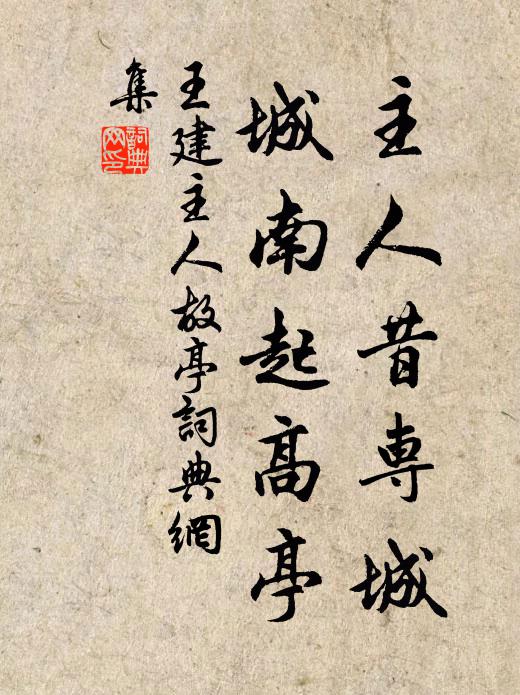 主人昔専城
城南起高亭
王建主人故亭詞典網
集
詞典
网印